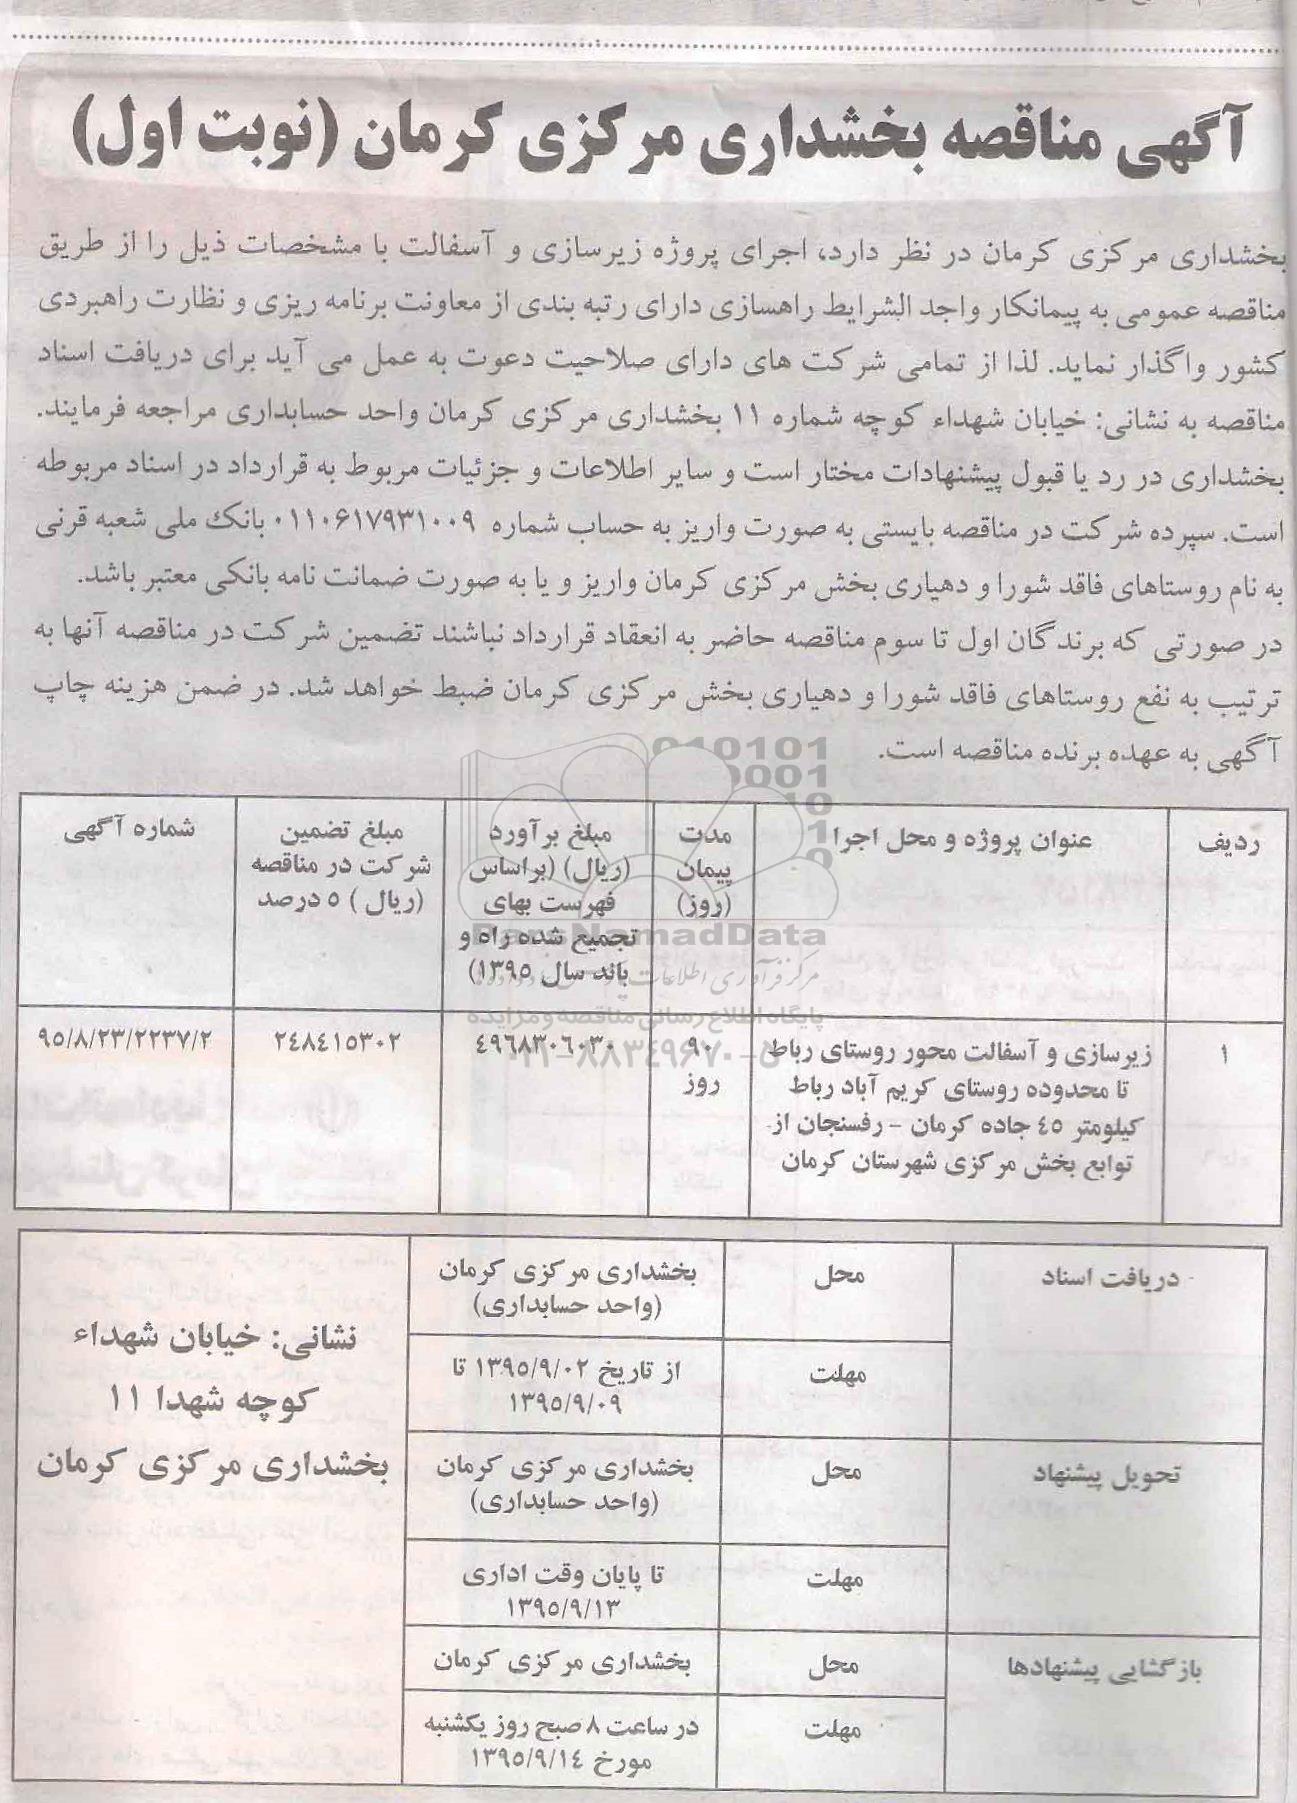 آگهی مناقصه بخشداری مرکزی کرمان (نوبت اول)
بخشداری مرکزی کرمان در نظر دارد، اجرای پروژه زیرسازی و آسفالت با مشخصات ذیل را از طریق
مناقصه عمومی به پیمانکار واجد الشرایط راهسازی دارای رتبه بندی از معاونت برنامه ریزی و نظارت راهبردی
کشور واگذار نماید. لذا از تمامی شرکت های دارای صلاحیت دعوت به عمل می آید برای دریافت اسناد
مناقصه به نشانی: خیابان شهداء کوچه شماره ۱۱ بخشداری مرکزی کرمان واحد حسابداری مراجعه فرمایند.
بخشداری در رد یا قبول پیشنهادات مختار است و سایر اطلاعات و جزئیات مربوط به قرارداد در اسناد مربوطه
است. سپرده شرکت در مناقصه بایستی به صورت واریز به حساب شماره ۰۱۱۰۶۱۷۹۳۱۰۰۹ بانک ملی شعبه قرنی
به نام روستاهای فاقد شورا و دهیاری بخش مرکزی کرمان واریز و یا به صورت ضمانت نامه بانکی معتبر باشد.
در صورتی که برندگان اول تا سوم مناقصه حاضر به انعقاد قرارداد نباشند تضمین شرکت در مناقصه آنها به
ترتیب به نفع روستاهای فاقد شورا و دهیاری بخش مرکزی کرمان ضبط خواهد شد. در ضمن هزینه چاپ
آگهی به عهده برنده مناقصه است.
ردیف
عنوان پروژه و محل اجرا
مدت
پیمان
(روز)
مبلغ برآورد
(ریال) (براساس
فهرست بهای
تجمیع شده راه و
باند سال ۱۳۹۵)
مبلغ تضمین
شرکت در مناقصه
(ریال) ۵ درصد
شماره آگهی
۱
زیرسازی و آسفالت محور روستای رباط
تا محدوده روستای کریم آباد رباط
کیلومتر ۴۵ جاده کرمان - رفسنجان از
توابع بخش مرکزی شهرستان کرمان
۹۰
روز
۴۹۶۸۳۰۶۰۳۰
۲۴۸۴۱۵۳۰۲
۹۵/۸/۲۳/۲۲۳۷/۲
ParsNamadData
پایگاه اطلاع رسانی مناقصه و مزایده
۰۲۱-۸۸۳۴۹۶۷۰-۵
دریافت اسناد
محل
بخشداری مرکزی کرمان
(واحد حسابداری)
مهلت
از تاریخ ۱۳۹۵/۹/۰۲ تا
۱۳۹۵/۹/۰۹
تحویل پیشنهاد
محل
بخشداری مرکزی کرمان
(واحد حسابداری)
مهلت
تا پایان وقت اداری
۱۳۹۵/۹/۱۳
بازگشایی پیشنهادها
محل
بخشداری مرکزی کرمان
مهلت
در ساعت ۸ صبح روز یکشنبه
مورخ ۱۳۹۵/۹/۱۴
نشانی: خیابان شهداء
کوچه شهدا ۱۱
بخشداری مرکزی کرمان